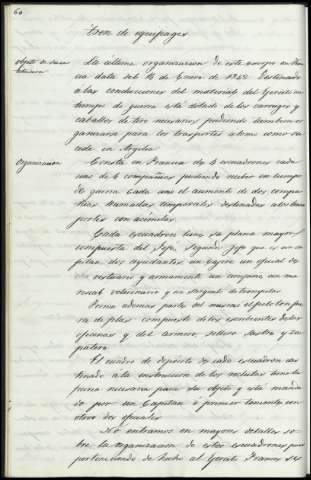 60
Tren de equipages
objeto de su
La última organizacion de este cuerpo en Fran
cia data del 14 de Enero de 1842. Destinado
a las conducciones del material del Ejercito en
tiempo de guerra está dotado de los carruages y
caballos de tiro necesarios pudiendo
para los trasportes a lomo como su
cede en Argelia.
Organizacion
Consta en Francia de 4 escuadrones cada
uno de 4 compañias pudiendo recibir en tiempo
de guerra cada uno el aumento de dos compa
ñias llamadas temporales destinadas a los tras
portes con acémilas.
Cada escuadron tiene su plana mayor
compuesta del Gefe, Segundo Gefe que es un ca
pitan, dos ayudantes, un cajero un oficial de
vestuario y armamento un cirujano un ma
riscal veterinario y un sargento de trompetas.
Forma ademas parte del mismo el peloton fue
ra de filas compuesto de los escribientes de las
oficinas y del armero, sillero sastre y za
patero.
El cuadro de depósito de cada escuadron des
tinado a la instruccion de los reclutas tiene la
fuerza necesaria para su objeto y está manda
do por un Capitan ó primer teniente con
dos oficiales
No entramos en mayores detalles so
bre la organizacion de estos escuadrones pues
perteneciendo de hecho al Ejercito Frances se